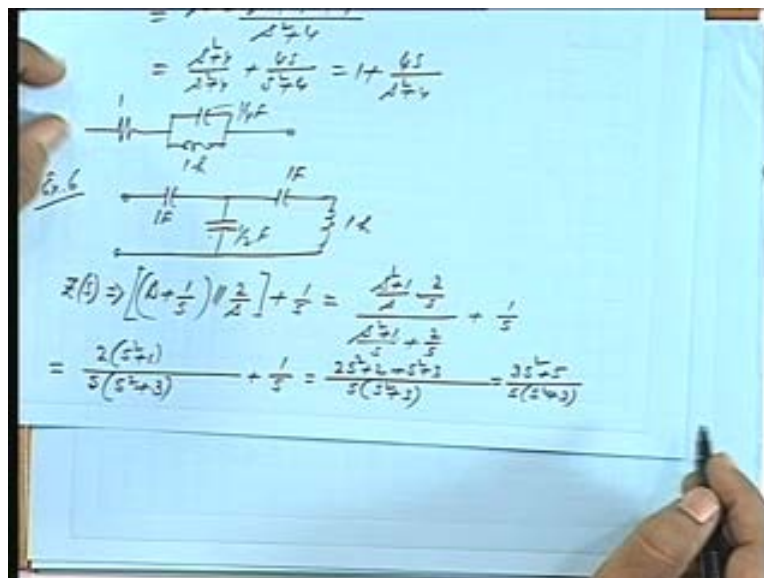 s²+4
= s²+4/s²+4 + 4s/s²+4 = 1 + 4s/s²+4
1
1/4F
1h
Ex.6
1F
1F
1/2F
1h
Z(s) ⇒ [(s+1/s) || 2/s] + 1/s = (s²+1/s · 2/s)/(s²+1/s + 2/s) + 1/s
= 2(s²+1)/s(s²+3) + 1/s = 2s²+2+s²+3/s(s²+3) = 3s²+5/s(s²+3)